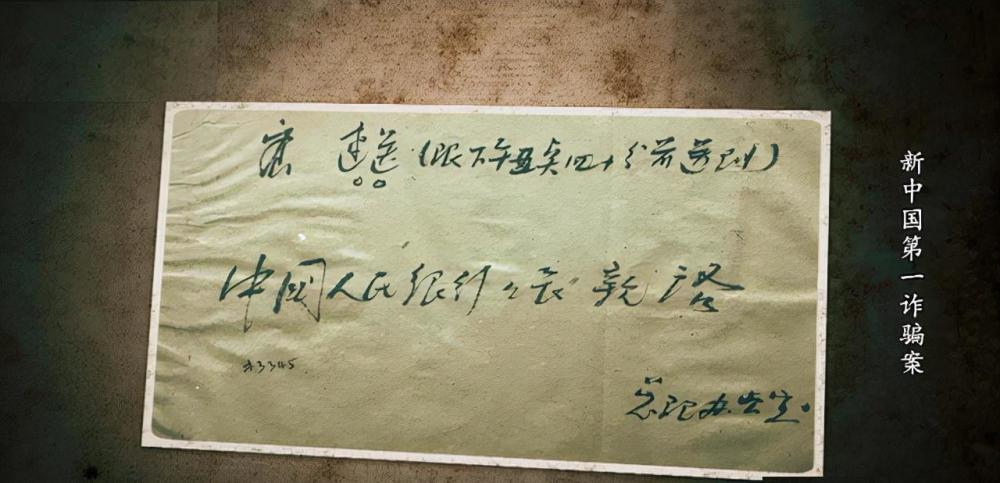 密 速送(限下午五点四十分前送到)
中國人民银行々长 亲启
3345
总理办公室
新中国第一诈骗案